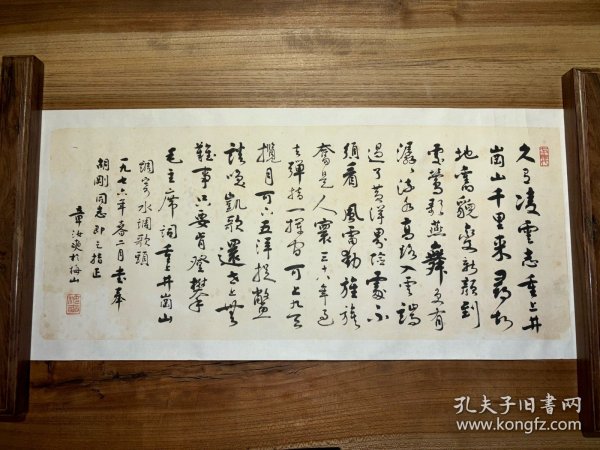 久有凌云志重上井
岗山千里来寻故
地旧貌变新颜到
处莺歌燕舞更有
潺潺流水高路入云端
过了黄洋界险处不
须看风雷动旌旗
奋是人寰三十八年过
去弹指一挥间可上九天
揽月可下五洋捉鳖
谈笑凯歌还世上无
难事只要肯登攀
毛主席词重上井岗山
调寄水调歌头
一九七六年春二月书奉
胡刚同志即之指正
章汝奭于梅山
孔夫子旧书网
www.kongfz.com